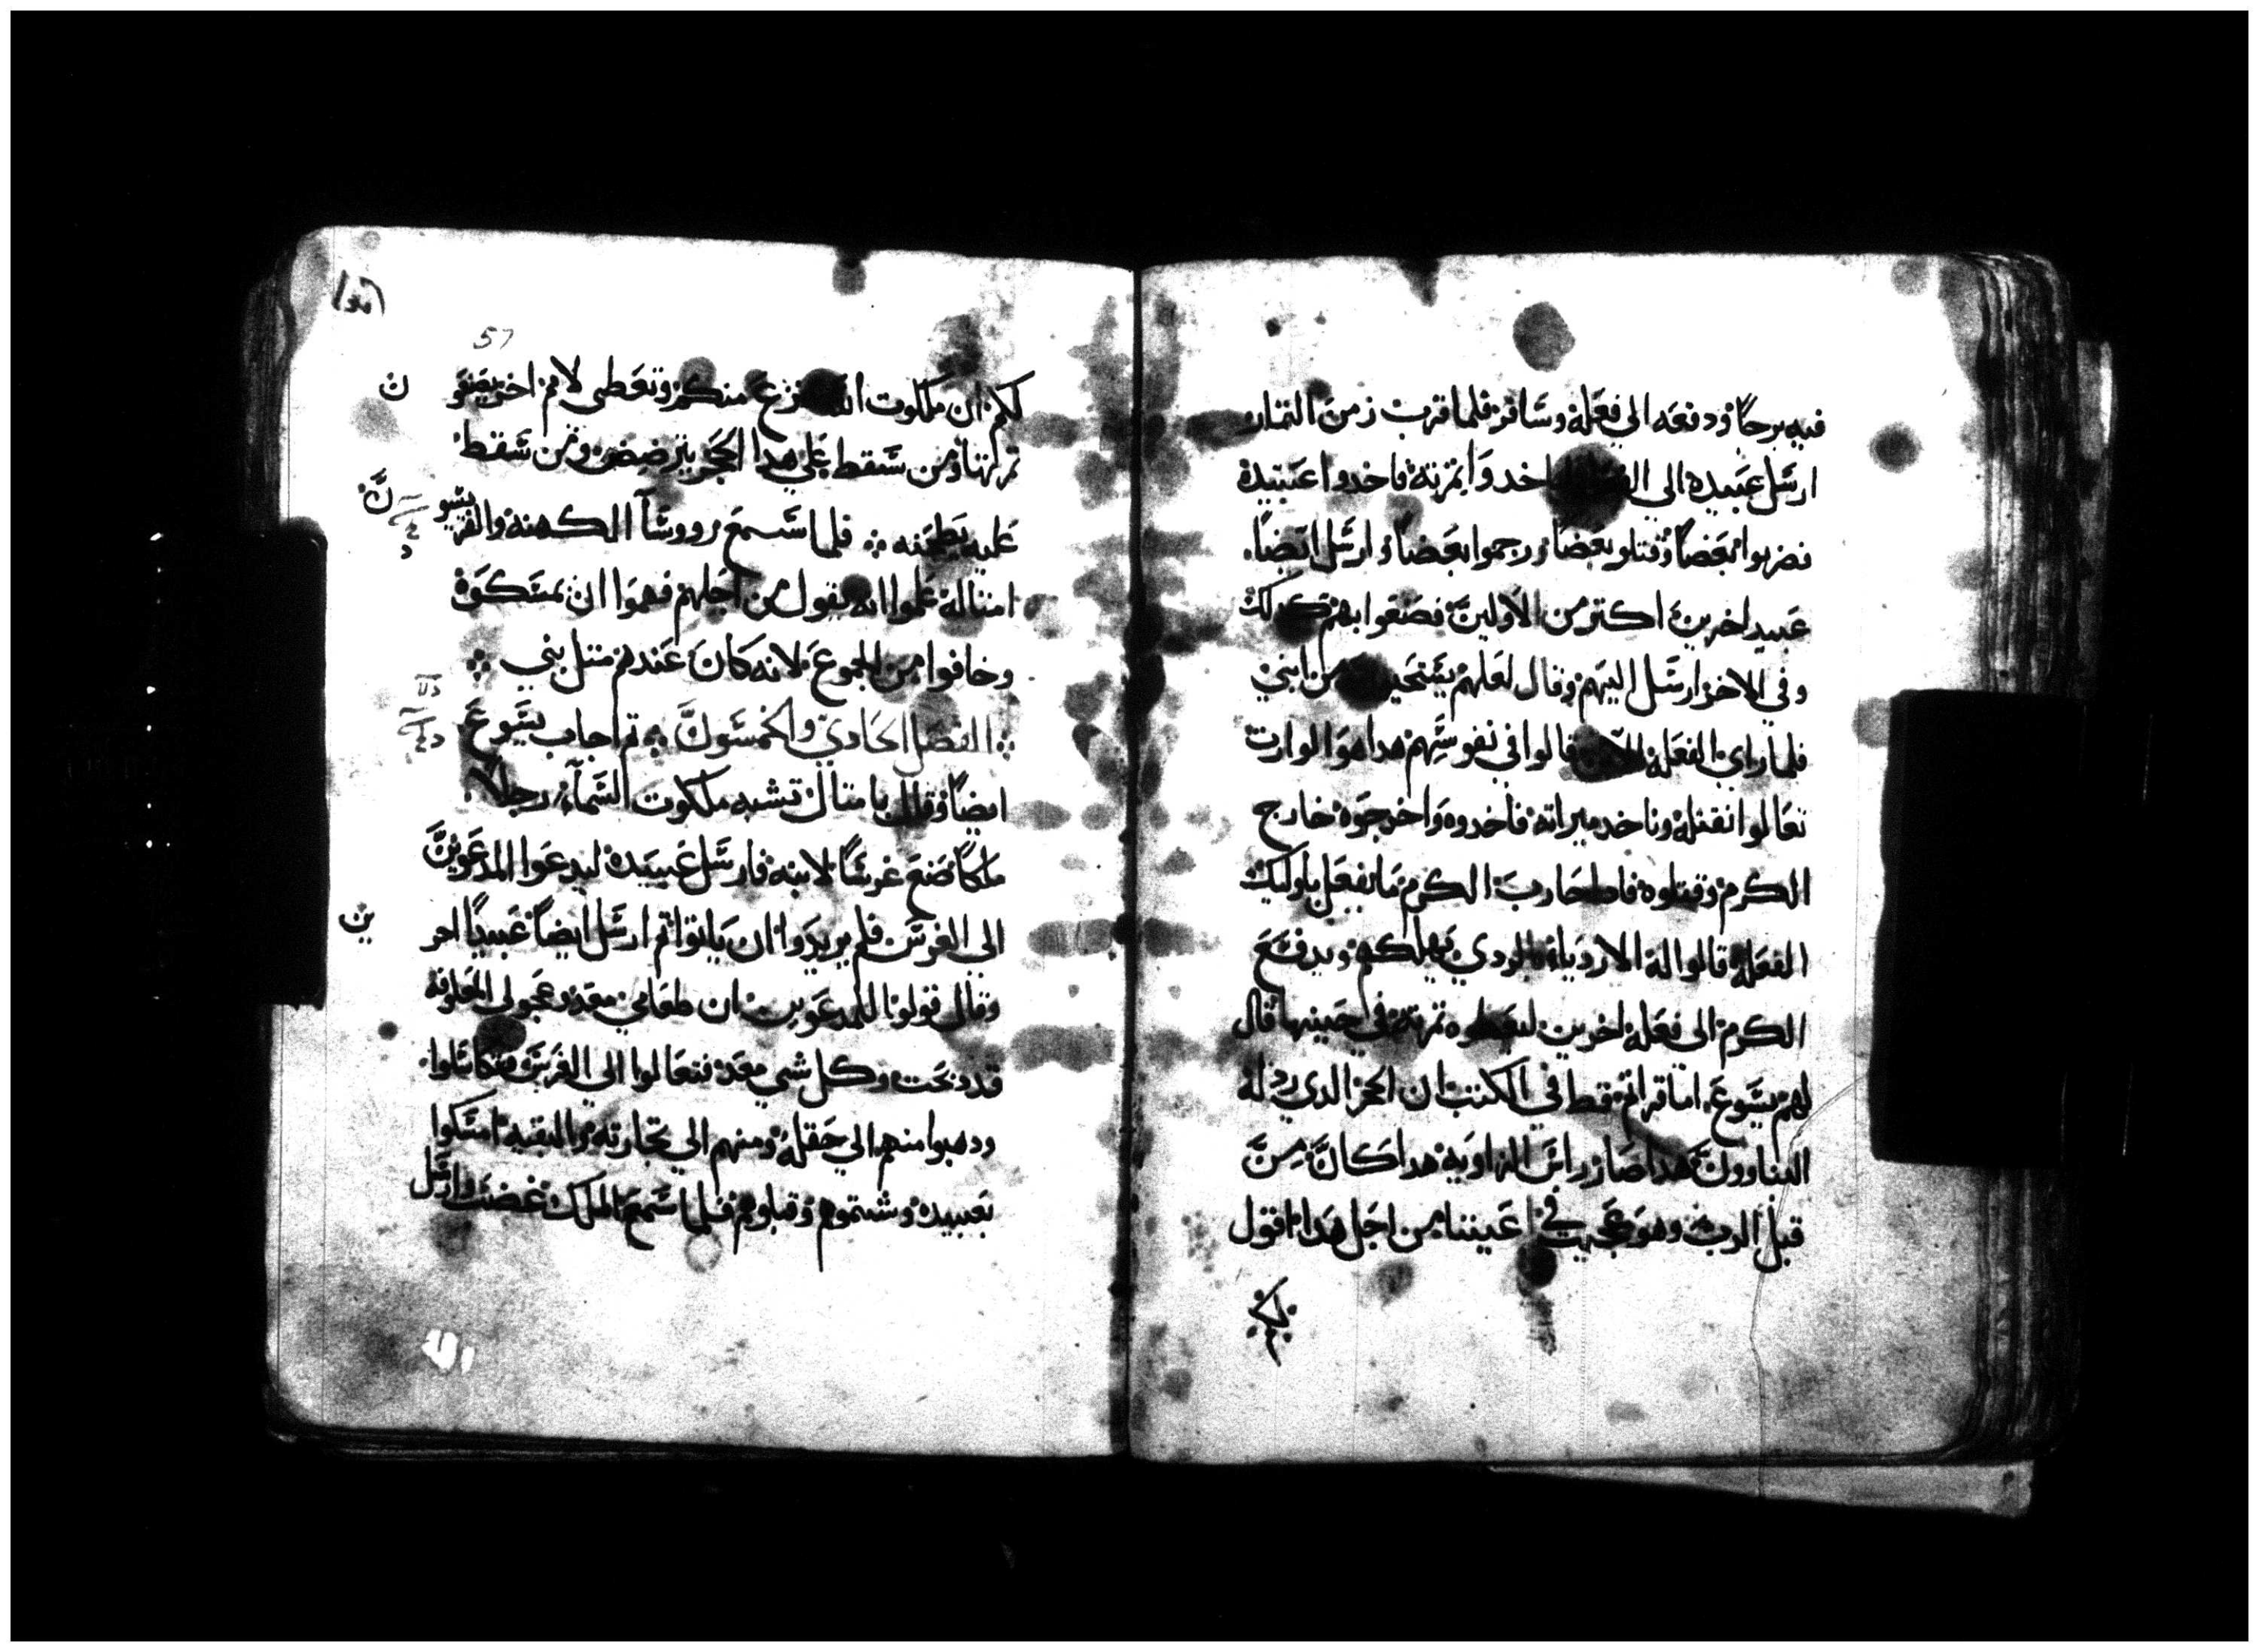 فيه برجاً ودفعه الي فعله وسافر فلما قرب زمن التمار
ارسل عبيده الي اخدوا تمرته فاخدوا عبيده
فضربوا بعضاً وقتلو بعضاً ورجموا بعضاً وارسل ايضاً
عبيد اخرين اكتر من الاولين فصنعوا بهم كدلك
وفي الاخر ارسل اليهم وقال لعلهم من ابني
فلما راي الفعله قالوا في نفوسهم هدا هو الوارت
تعالوا نقتله وناخد ميراته فاخدوه واخرجوه خارج
الكرم وقتلوه فادا جا رب الكرم ما يفعل باوليك
الفعله قالوا له الاردياء بالردي يهلكهم ويدفع
الكرم الي فعله اخرين ليعطوه تمرته في حينها قال
لهم يسوع اما قراتم قط في الكتب ان الحجر الدي ردله
البناوون هدا صار راس الزاويه هدا كان من
قبل الرب وهو عجيب في اعيننا من اجل هدا اقول
57
لكم ان ملكوت الله تنزع منكم وتعطي لامم اخر يصنعو
ن
تمرتها ومن سقط علي هدا الحجر يترضض ومن سقط
عليه يطحنه فلما سمع رووسآ الكهنه والفريسيو
ن
امتاله علموا انه يقول من اجلهم فهموا ان يمسكوه
وخافوا من الجموع لانه كان عندهم متل نبي
الفصل الحادي والخمسون تم اجاب يسوع
ايضاً وقال بامتال تشبه ملكوت السمآء رجلاً
ملكاً صنع عرساً لابنه فارسل عبيده ليدعوا المدعوين
الي العرس فلم يريدوا ان ياتوا تم ارسل ايضاً عبيداً اخر
ين
وقال قولوا للمدعوين ان طعامي معد وعجولي المعلوفه
قد دبحت وكل شي معد فتعالوا الي العرس فتكاسلوا
ودهبوا منهم الي حقله ومنهم الي تجارته والبقيه امسكوا
بعبيده وشتموهم وقتلوهم فلما سمع الملك غضب وارسل